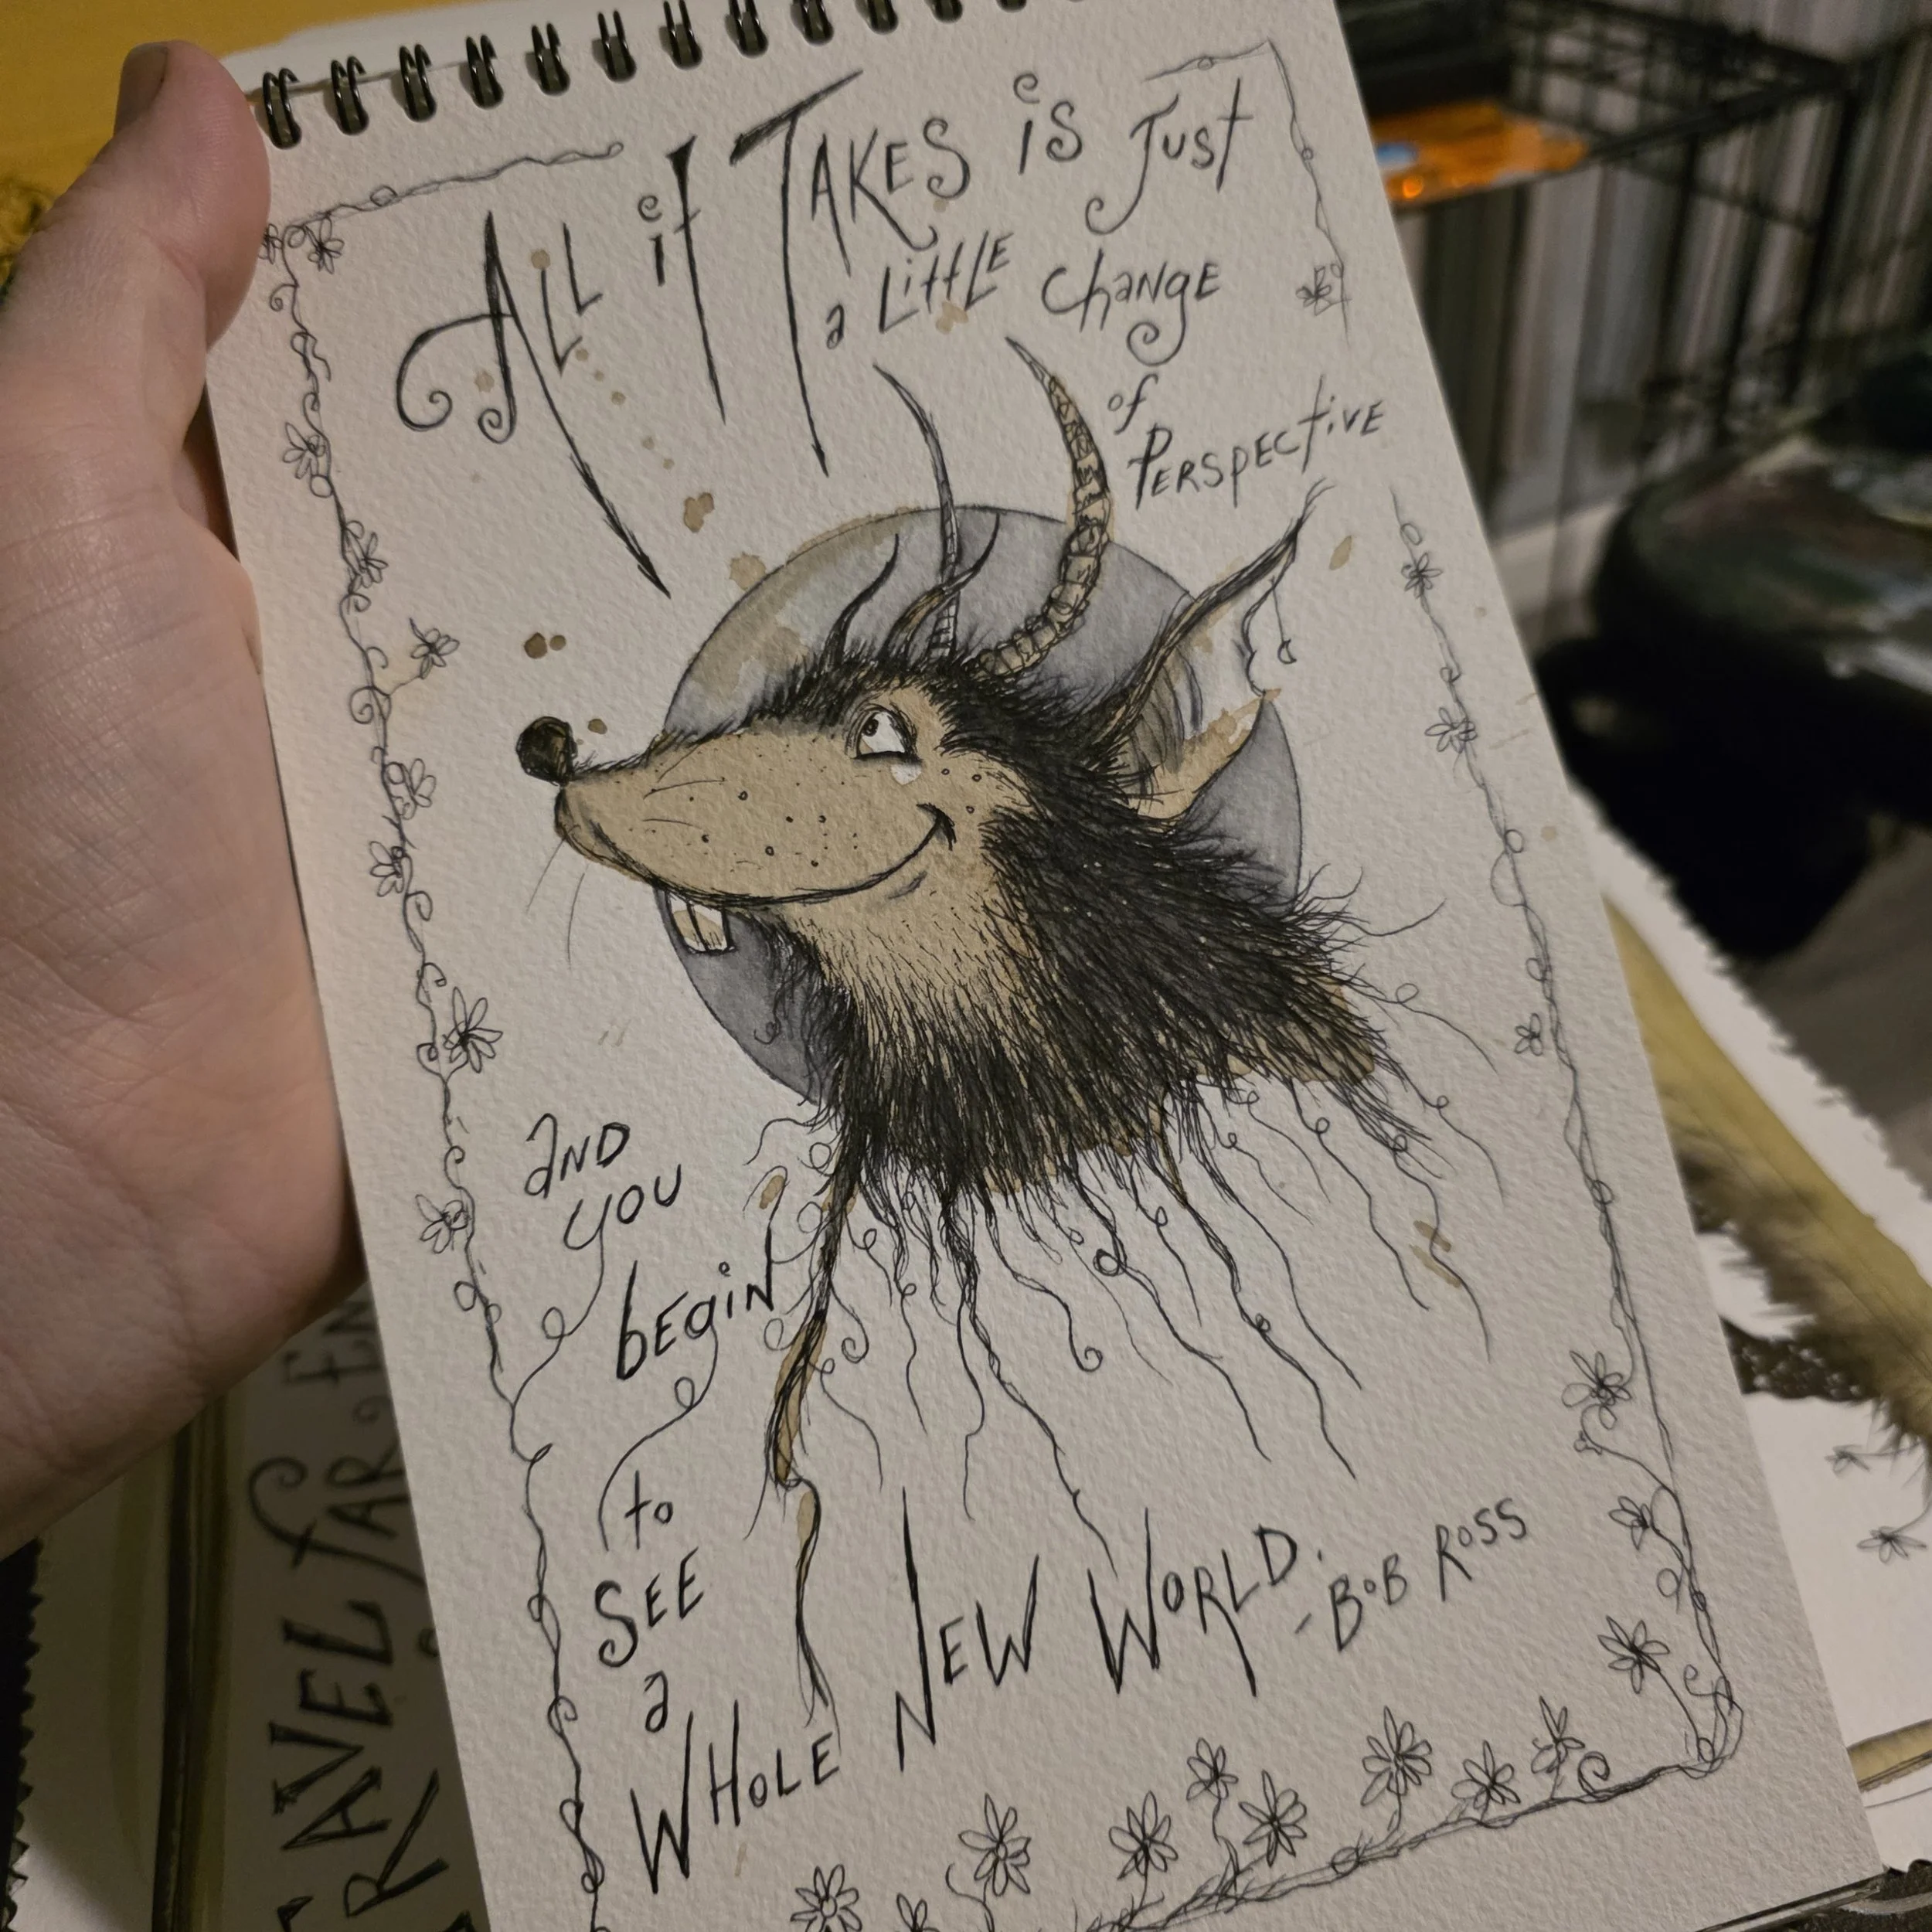 ALL it TAKES is Just
a LittLE change
of
PERSPECtiVE
aND
YOU
bEgiN
to
SEE
a
WHOLE NEW WORLD.
- BOB ROSS
TRAVEL fAR, EN